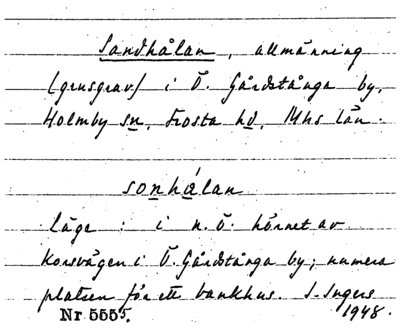 Sandhålan, allmänning
(grusgrav) i Ö. Gårdstånga by,
Holmby sn, Frosta hd, Mhs län.
sonhålan
Läge: i n.ö. hörnet av
korsvägen i Ö. Gårdstånga by; numera
platsen för ett bankhus. I. Ingers
Nr 5555. 1948.